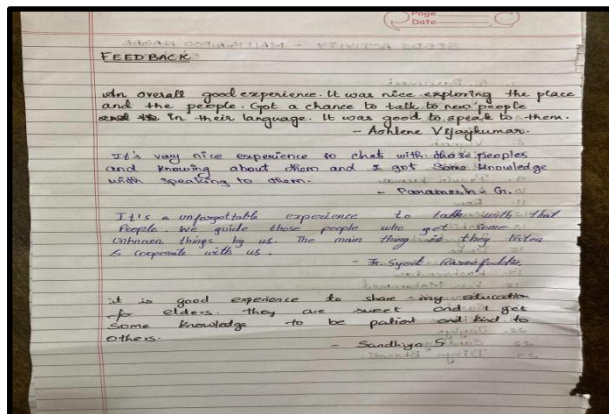 Page
Date
FEEDBACK
An overall good experience. It was nice exploring the place
and the people. Got a chance to talk to new people
in their language. It was good to speak to them.
- Ashlene Vijaykumar.
It's very nice experience to chat with those peoples
and knowing about them and I got Some knowledge
with speaking to them.
- Paramesh G.
It's a unforgettable experience to talk with that
People. We guide those people who get some
unknown things by us. The main thing is they listen
& cooperate with us.
- Syed
it is good experience to share my education
for elders. they are sweet and I get
Some knowledge to be patient and kind to
others.
- Sandhiya S